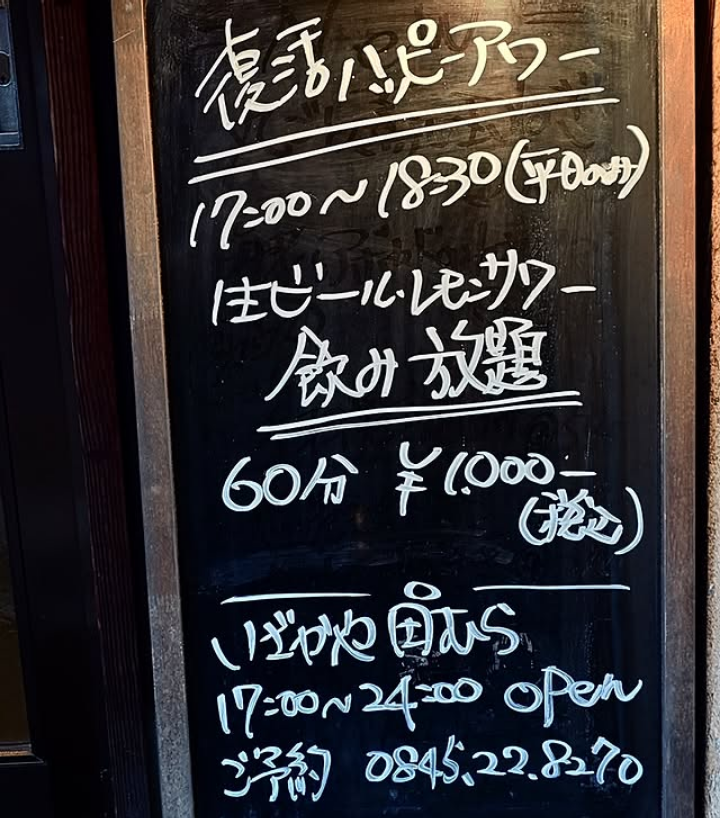 復活ハッピーアワー
17:00～18:30(平日のみ)
生ビール・レモンサワー
飲み放題
60分 ¥1.000-
(税込)
いざかや 田むら
17:00～24:00 open
ご予約 0845.22.8270